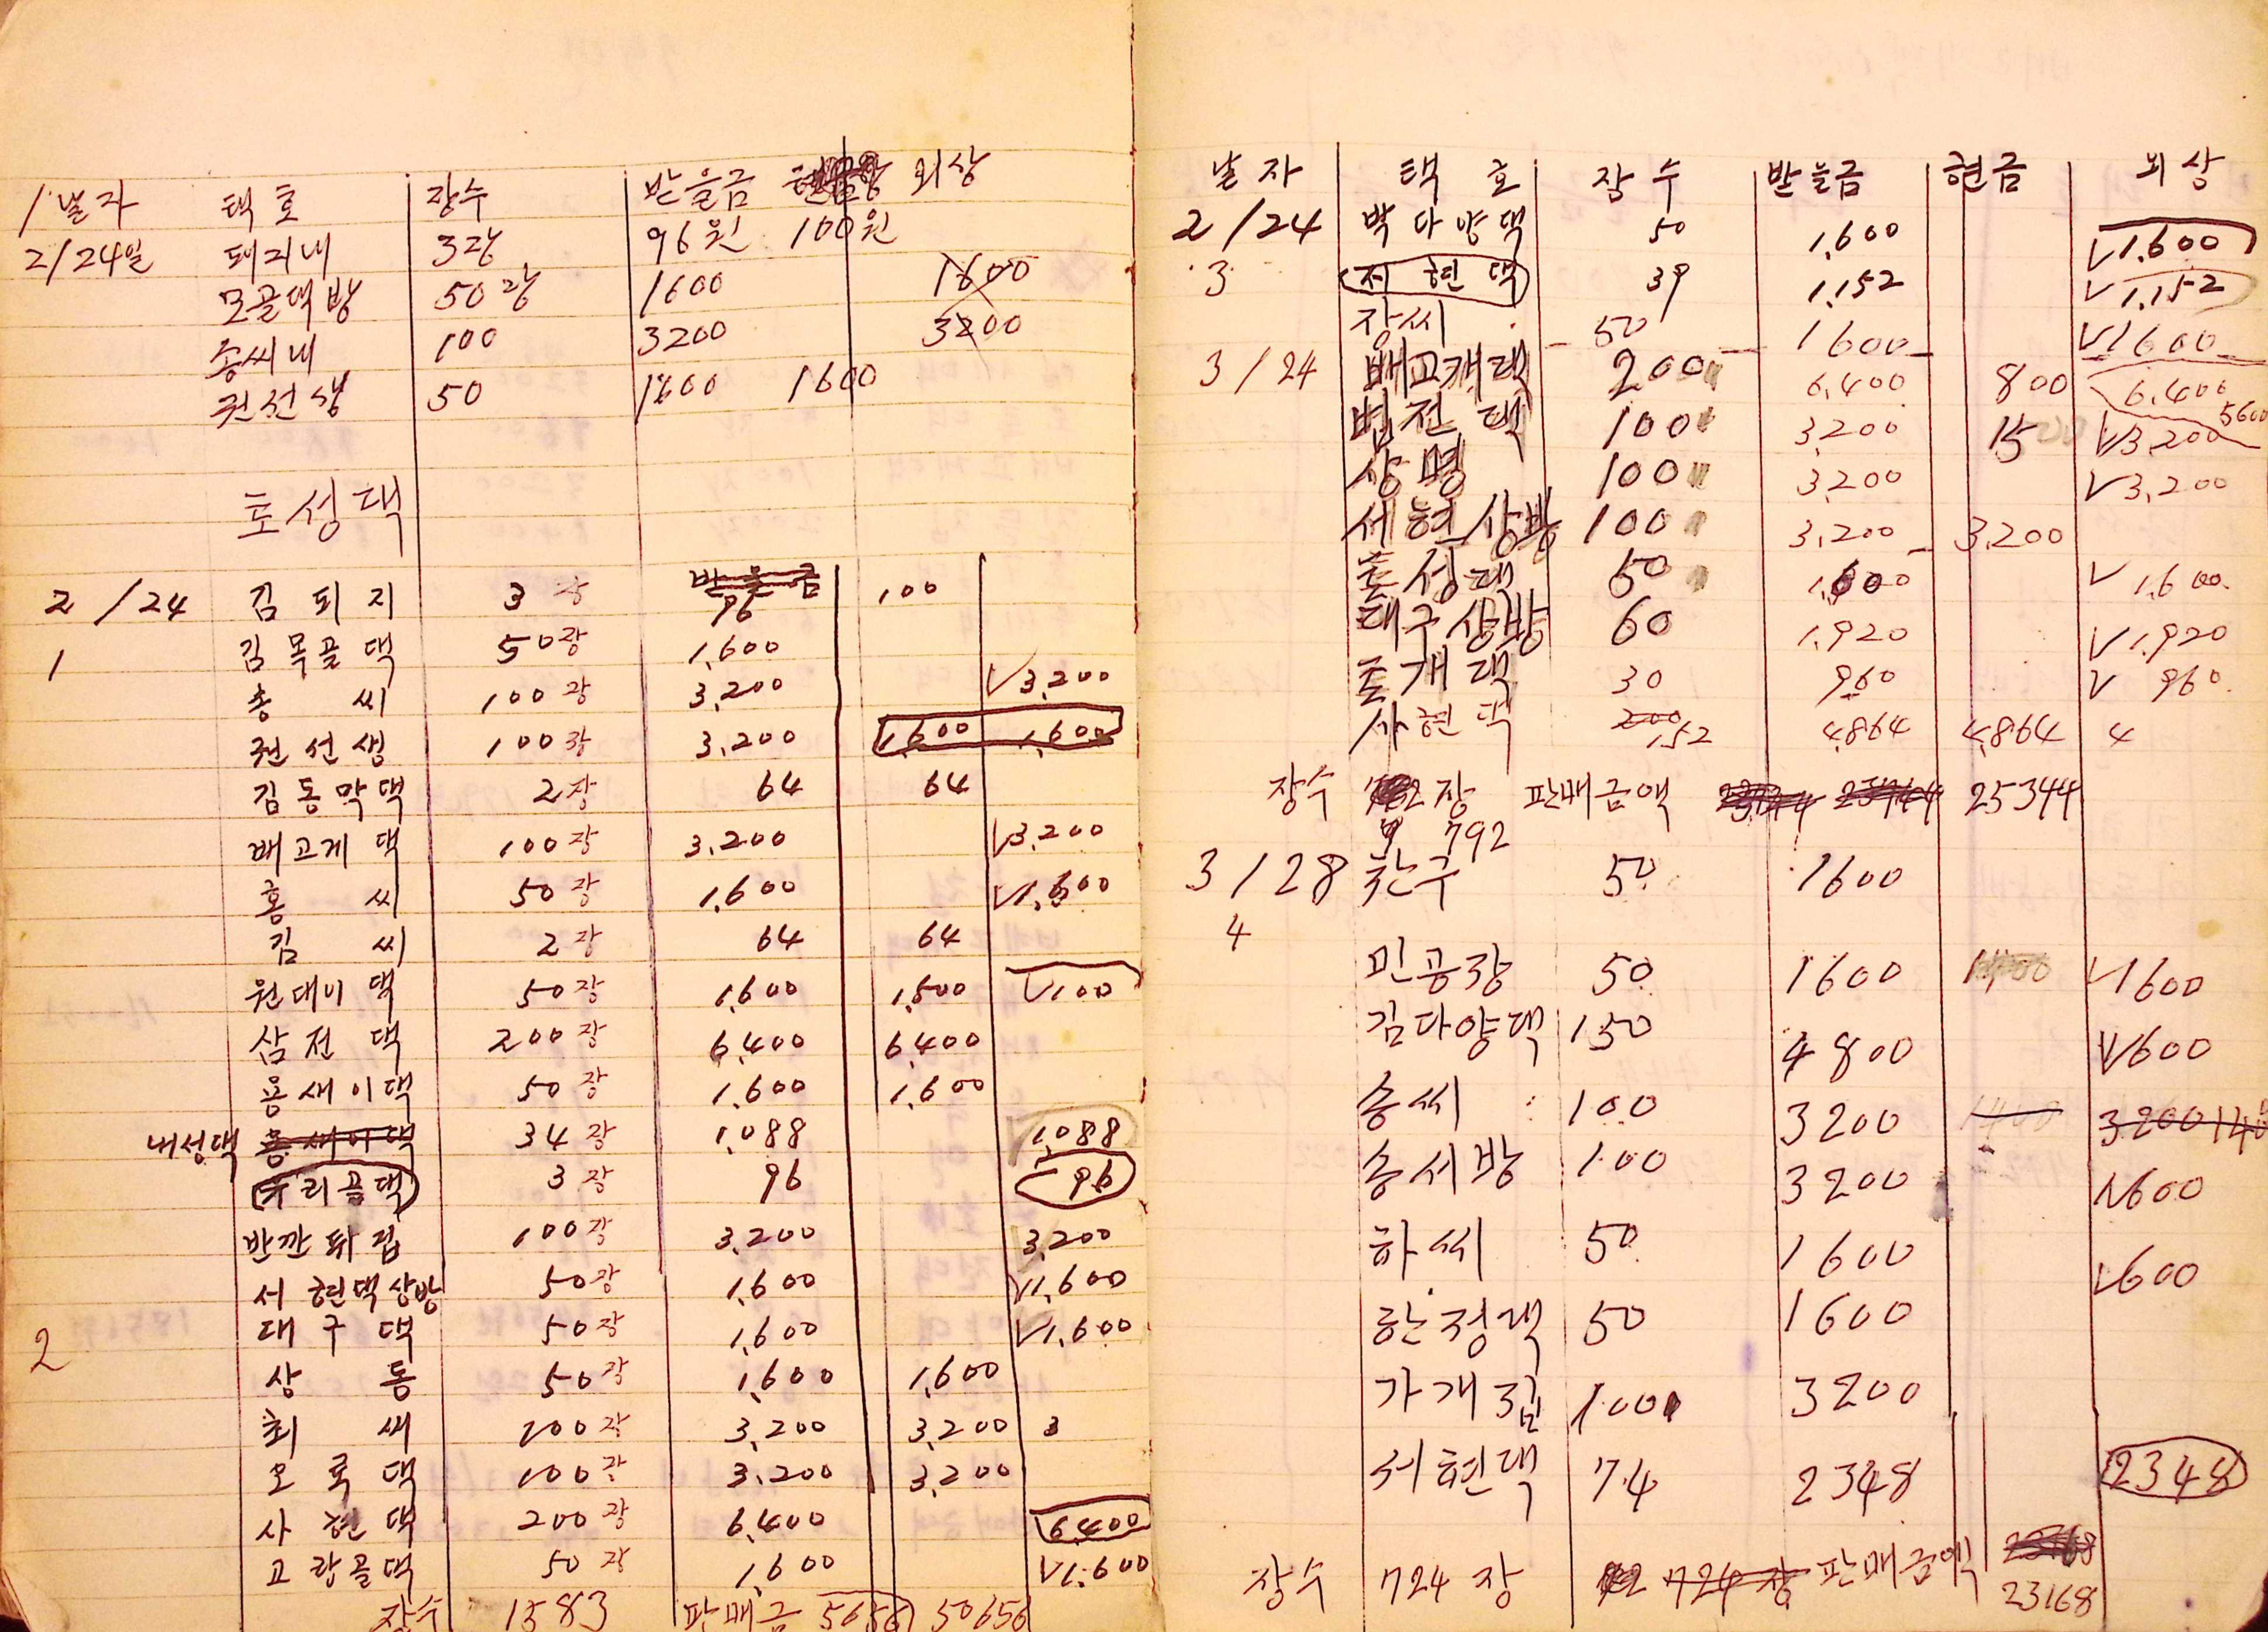 1 날자 택호 장수 받을금 외상
2/24일 퇴지내 3장 96원 100원
모골댁방 50장 1600 1600
송씨내 100 3200 3200
권선생 50 1600 1600
토성댁
받을금
2/24 김퇴지 3장 96 100
1 김목골댁 50장 1,600
송씨 100장 3,200 V3,200
권선생 100장 3,200 1,600 1,600
김동막댁 2장 64 64
배고게댁 100장 3,200 V3,200
홍씨 50장 1,600 V1,600
김씨 2장 64 64
원대이댁 50장 1,600 1,500 V100
삼전댁 200장 6,400 6,400
용새이댁 50장 1,600 1,600
내성댁 용새이댁 34장 1,088 1,088
우리골댁 3장 96 96
반깐뒤집 100장 3,200 3,200
서현댁상방 50장 1,600 V1,600
2 대구댁 50장 1,600 V1,600
상동 50장 1,600 1,600
최씨 100장 3,200 3,200 3
오록댁 100장 3,200 3,200
사현댁 200장 6,400 6,400
고랍골댁 50장 1,600 V1,600
장수 1583 판매금 5656 50656
날자 택호 장수 받을금 현금 외상
2/24 박다양댁 50 1,600 V1,600
3 저현댁 39 1,152 V1,152
장씨 50 1600 V1600
3/24 배고개댁 200 6,400 800 6,400 5600
법전댁 100 3,200 15 V3,200
상명 100 3,200 V3,200
서현상방 100 3,200 3,200
토성댁 50 1,600 V1,600
대구상방 60 1,920 V1,920
토개댁 30 960 V960
사현댁 200 152 4,864 4,864 4
장수 장 판매금액 25344
792
3/28 찬구 50 1600
4
민공장 50 1600 V1600
김다양댁 150 4800 V600
송씨 100 3200 1400 3200
송서방 100 3200 V600
하씨 50 1600 V600
한정댁 50 1600
가개집 100 3200
서현댁 74 2348 2348
장수 724장 724장 판매금액 23168
23168